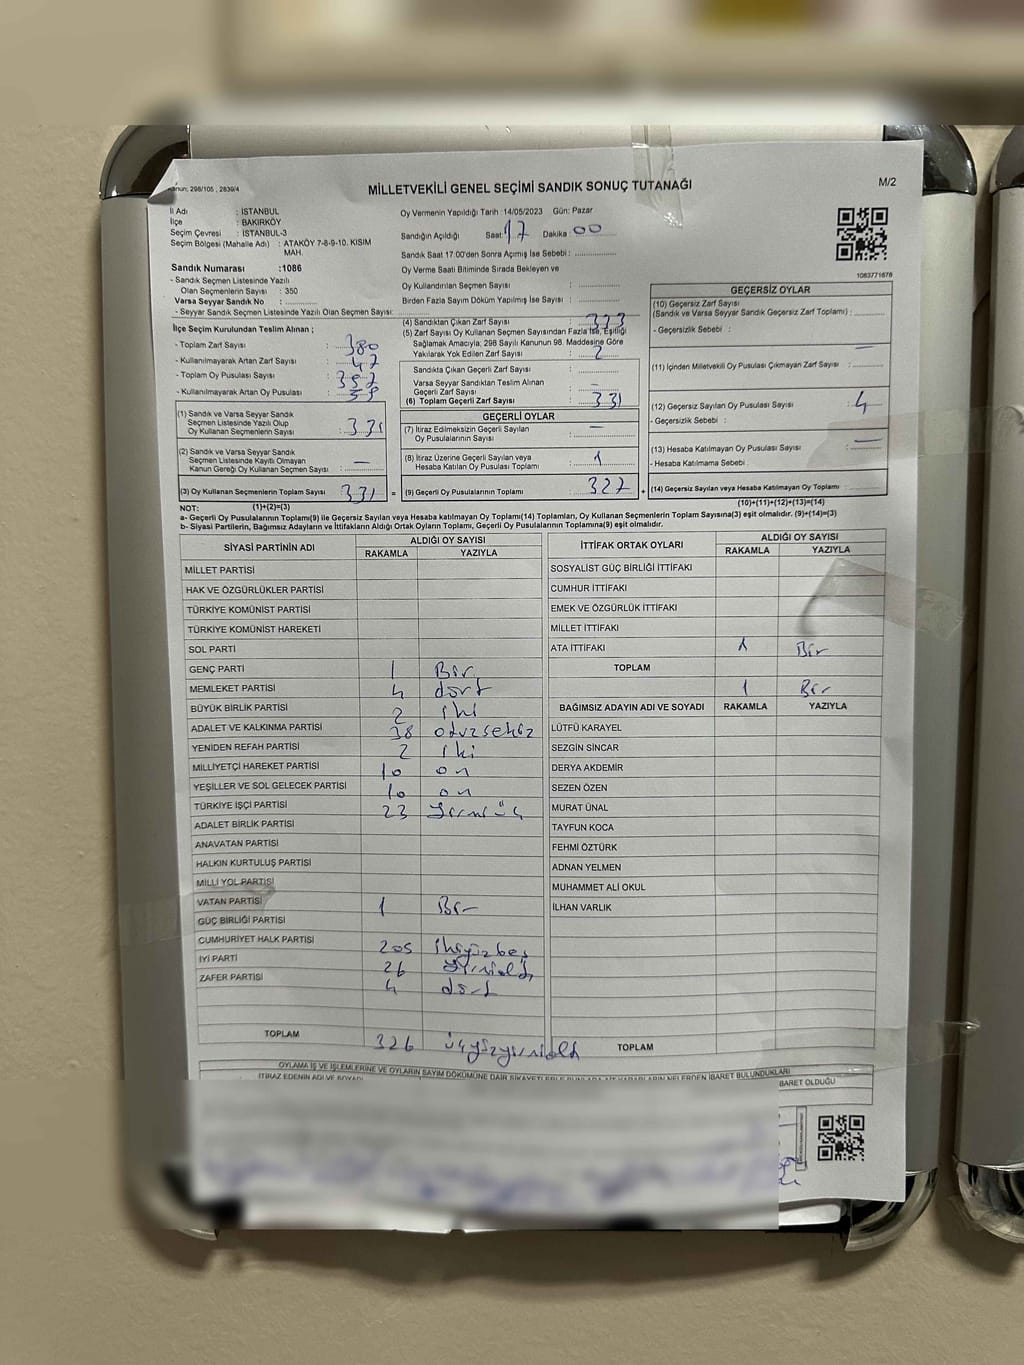 Kanun: 298/105 , 2839/4
MİLLETVEKİLİ GENEL SEÇİMİ SANDIK SONUÇ TUTANAĞI
M/2
İl Adı : İSTANBUL
İlçe : BAKIRKÖY
Seçim Çevresi : İSTANBUL-3
Seçim Bölgesi (Mahalle Adı) : ATAKÖY 7-8-9-10. KISIM
MAH.
Sandık Numarası :1086
- Sandık Seçmen Listesinde Yazılı
Olan Seçmenlerin Sayısı : 350
Varsa Seyyar Sandık No :
- Seyyar Sandık Seçmen Listesinde Yazılı Olan Seçmen Sayısı:
Oy Vermenin Yapıldığı Tarih :14/05/2023 Gün: Pazar
Sandığın Açıldığı Saat: 17 Dakika: 00
Sandık Saat 17.00'den Sonra Açılmış İse Sebebi :
Oy Verme Saati Bitiminde Sırada Bekleyen ve
Oy Kullandırılan Seçmen Sayısı :
Birden Fazla Sayım Döküm Yapılmış İse Sayısı :
1083771676
İlçe Seçim Kurulundan Teslim Alınan ;
- Toplam Zarf Sayısı : 380
- Kullanılmayarak Artan Zarf Sayısı : 47
- Toplam Oy Pusulası Sayısı :
- Kullanılmayarak Artan Oy Pusulası :
(1) Sandık ve Varsa Seyyar Sandık
Seçmen Listesinde Yazılı Olup
Oy Kullanan Seçmenlerin Sayısı : 331
(2) Sandık ve Varsa Seyyar Sandık
Seçmen Listesinde Kayıtlı Olmayan
Kanun Gereği Oy Kullanan Seçmen Sayısı : —
(3) Oy Kullanan Seçmenlerin Toplam Sayısı 331
(4) Sandıktan Çıkan Zarf Sayısı : 333
(5) Zarf Sayısı Oy Kullanan Seçmen Sayısından Fazla İse, Eşitliği
Sağlamak Amacıyla; 298 Sayılı Kanunun 98. Maddesine Göre
Yakılarak Yok Edilen Zarf Sayısı : 2
Sandıkta Çıkan Geçerli Zarf Sayısı :
Varsa Seyyar Sandıktan Teslim Alınan
Geçerli Zarf Sayısı : —
(6) Toplam Geçerli Zarf Sayısı : 331
GEÇERLİ OYLAR
(7) İtiraz Edilmeksizin Geçerli Sayılan
Oy Pusulalarının Sayısı : —
(8) İtiraz Üzerine Geçerli Sayılan veya
Hesaba Katılan Oy Pusulası Toplamı : 1
= (9) Geçerli Oy Pusulalarının Toplamı : 327 +
GEÇERSİZ OYLAR
(10) Geçersiz Zarf Sayısı
(Sandık ve Varsa Seyyar Sandık Geçersiz Zarf Toplamı) :
- Geçersizlik Sebebi :
—
(11) İçinden Milletvekili Oy Pusulası Çıkmayan Zarf Sayısı :
(12) Geçersiz Sayılan Oy Pusulası Sayısı : 4
- Geçersizlik Sebebi :
(13) Hesaba Katılmayan Oy Pusulası Sayısı : —
- Hesaba Katılmama Sebebi :
(14) Geçersiz Sayılan veya Hesaba Katılmayan Oy Toplamı :
NOT: (1)+(2)=(3)
(10)+(11)+(12)+(13)=(14)
a- Geçerli Oy Pusulalarının Toplamı(9) ile Geçersiz Sayılan veya Hesaba Katılmayan Oy Toplamı(14) Toplamları, Oy Kullanan Seçmenlerin Toplam Sayısına(3) eşit olmalıdır. (9)+(14)=(3)
b- Siyasi Partilerin, Bağımsız Adayların ve İttifakların Aldığı Ortak Oyların Toplamı, Geçerli Oy Pusulalarının Toplamına(9) eşit olmalıdır.
SİYASİ PARTİNİN ADI ALDIĞI OY SAYISI
RAKAMLA YAZIYLA
MİLLET PARTİSİ
HAK VE ÖZGÜRLÜKLER PARTİSİ
TÜRKİYE KOMÜNİST PARTİSİ
TÜRKİYE KOMÜNİST HAREKETİ
SOL PARTİ
GENÇ PARTİ 1 Bir
MEMLEKET PARTİSİ 4 dört
BÜYÜK BİRLİK PARTİSİ 2 iki
ADALET VE KALKINMA PARTİSİ 38 otuzsekiz
YENİDEN REFAH PARTİSİ 2 iki
MİLLİYETÇİ HAREKET PARTİSİ 10 on
YEŞİLLER VE SOL GELECEK PARTİSİ 10 on
TÜRKİYE İŞÇİ PARTİSİ 23 yirmiüç
ADALET BİRLİK PARTİSİ
ANAVATAN PARTİSİ
HALKIN KURTULUŞ PARTİSİ
MİLLİ YOL PARTİSİ
VATAN PARTİSİ 1 Bir
GÜÇ BİRLİĞİ PARTİSİ
CUMHURİYET HALK PARTİSİ 205 ikiyüzbeş
İYİ PARTİ 26 yirmialtı
ZAFER PARTİSİ 4 dört
TOPLAM 326 üçyüzyirmialtı
İTTİFAK ORTAK OYLARI ALDIĞI OY SAYISI
RAKAMLA YAZIYLA
SOSYALİST GÜÇ BİRLİĞİ İTTİFAKI
CUMHUR İTTİFAKI
EMEK VE ÖZGÜRLÜK İTTİFAKI
MİLLET İTTİFAKI
ATA İTTİFAKI 1 Bir
TOPLAM
1 Bir
BAĞIMSIZ ADAYIN ADI VE SOYADI RAKAMLA YAZIYLA
LÜTFÜ KARAYEL
SEZGİN SİNCAR
DERYA AKDEMİR
SEZEN ÖZEN
MURAT ÜNAL
TAYFUN KOCA
FEHMİ ÖZTÜRK
ADNAN YELMEN
MUHAMMET ALİ OKUL
İLHAN VARLIK
TOPLAM
OYLAMA İŞ VE İŞLEMLERİNE VE OYLARIN SAYIM DÖKÜMÜNE DAİR ŞİKAYETLERLE BUNLARA AİT KARARLARIN NELERDEN İBARET BULUNDUKLARI
İTİRAZ EDENİN ADI VE SOYADI
BARET OLDUĞU